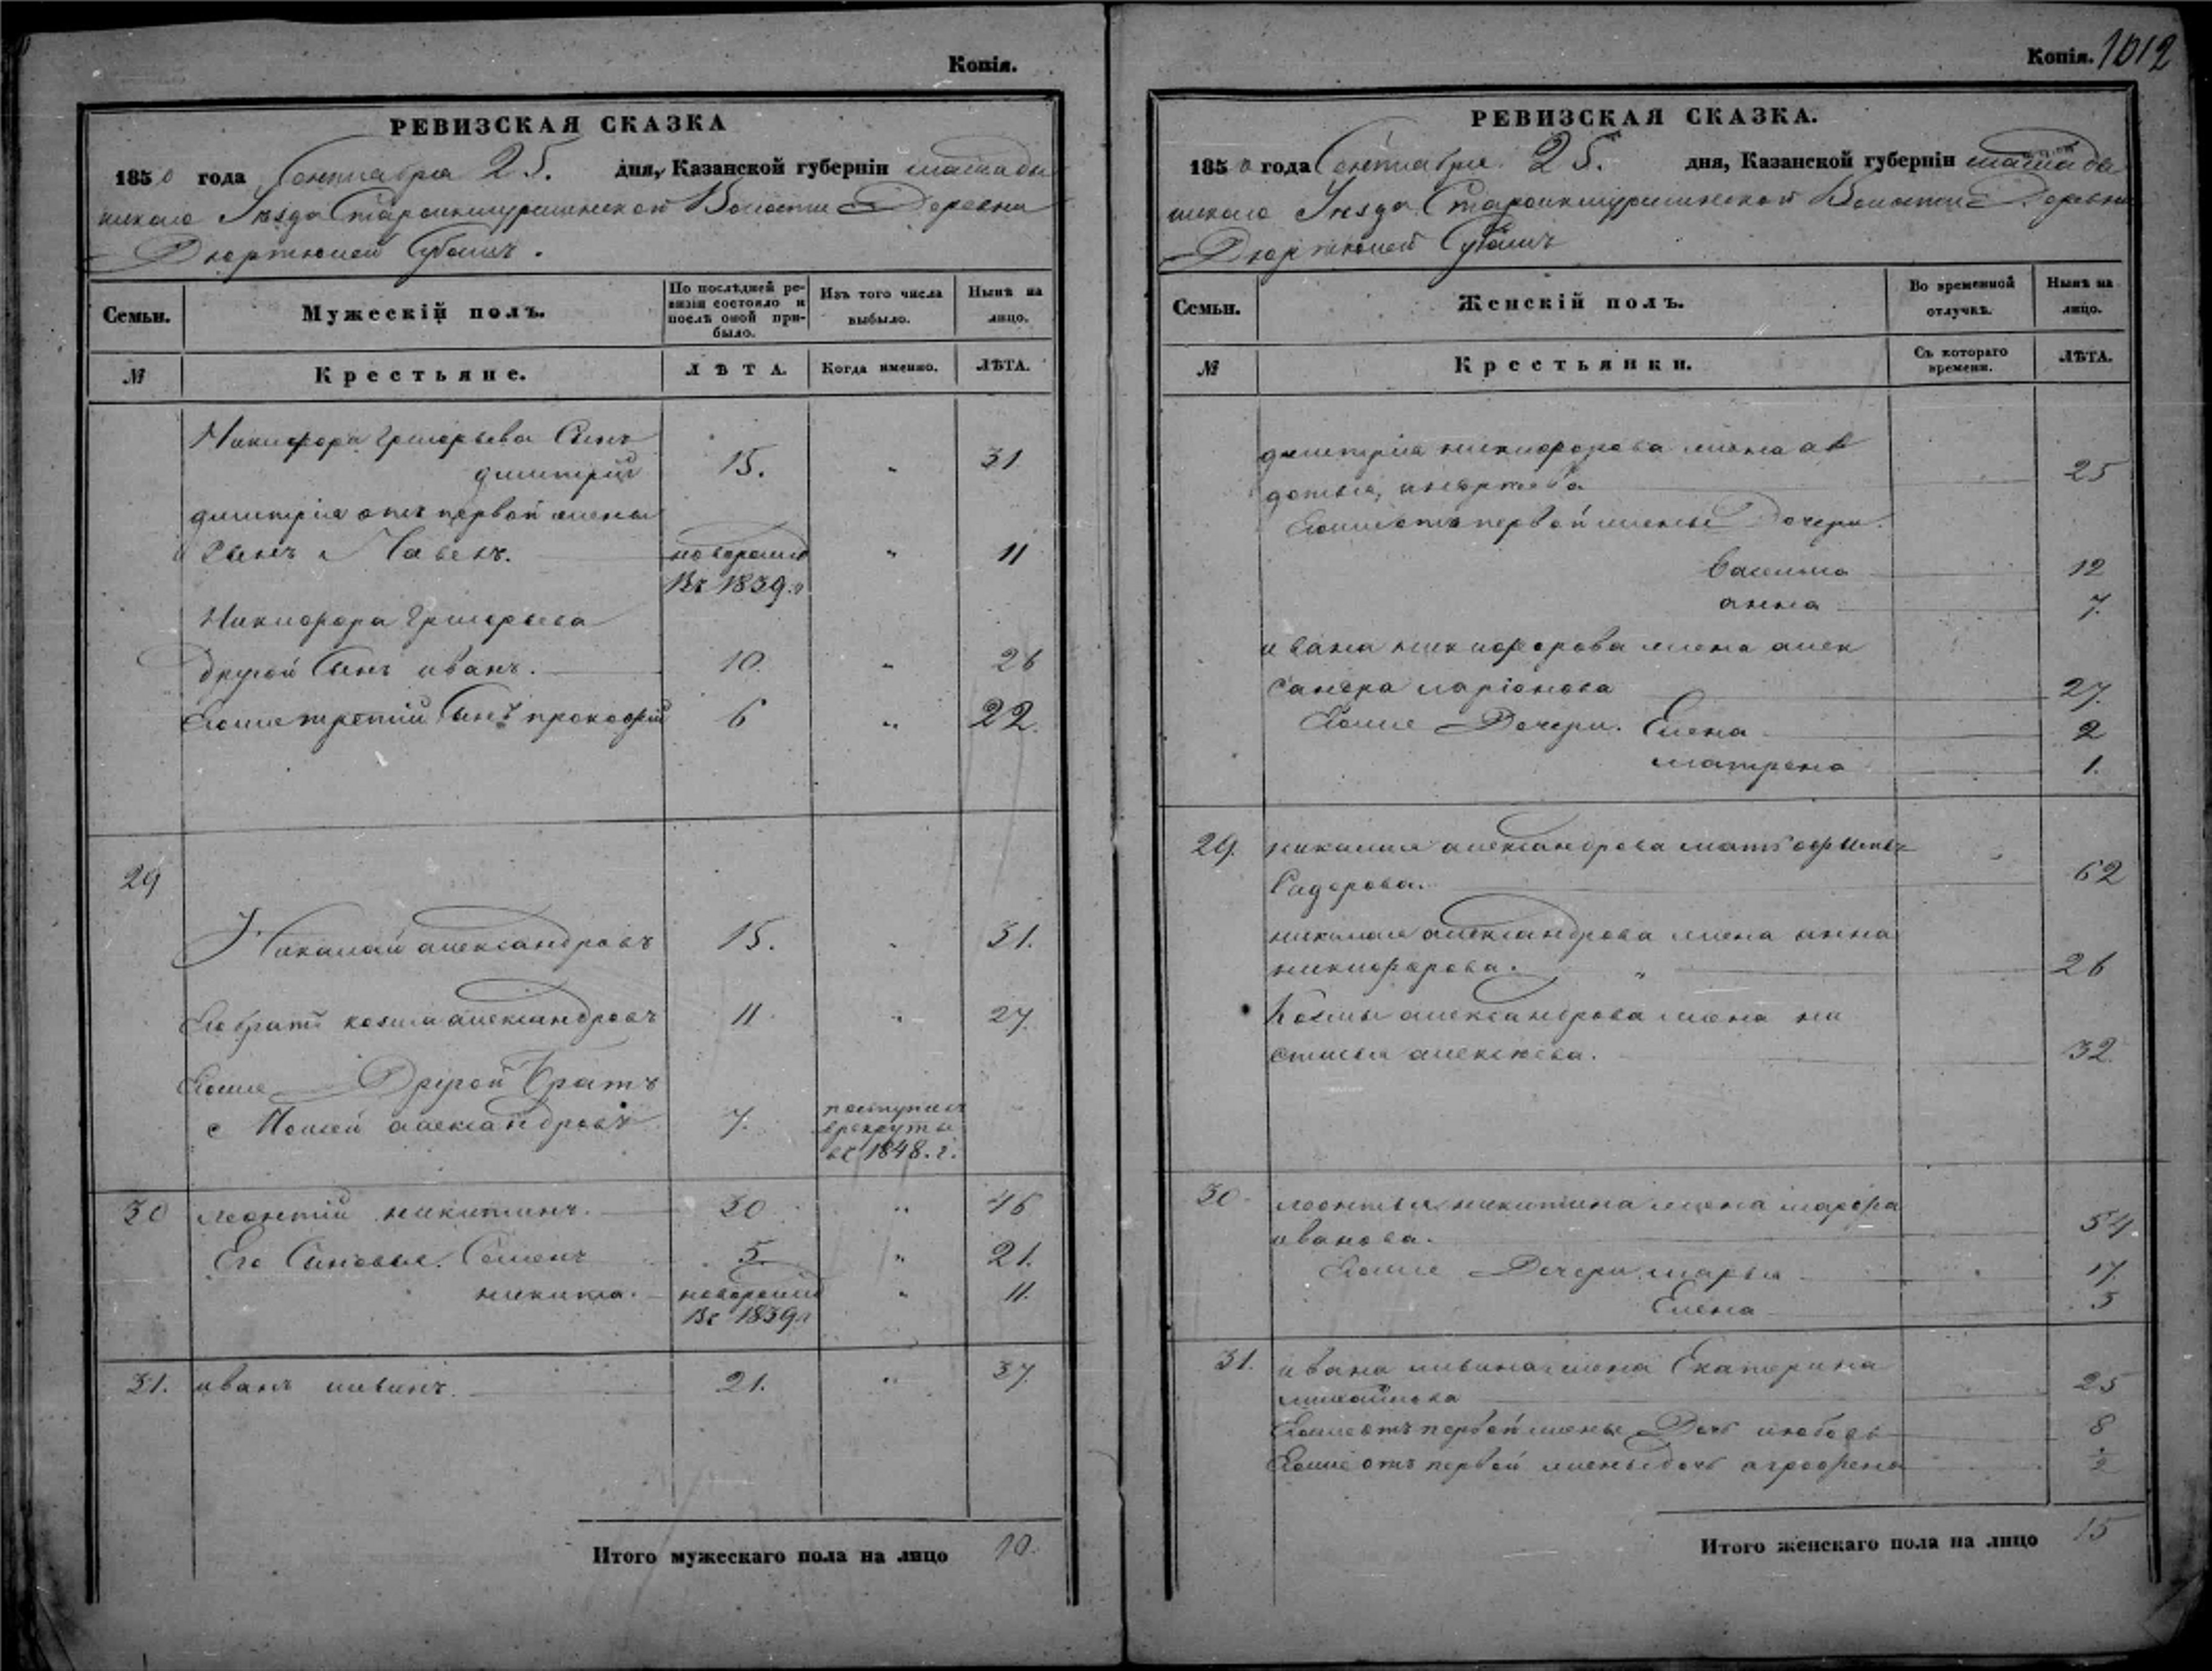 Копія.
РЕВИЗСКАЯ СКАЗКА
1850 года Сентября 25. дня, Казанской губерніи мамады
шского Уезда Староикшурминской Волости Деревни
Дюртюлей Субашъ.
Семьи.
Мужескій полъ.
По послѣдней ре-
визіи состояло и
послѣ оной при-
было.
Изъ того числа
выбыло.
Нынѣ на
лицо.
№
Крестьяне.
ЛѢТА.
Когда именно.
ЛѢТА.
Никифора Григорьева Сынъ
димитрій 15. „ 31
димитрія отъ первой жены
Сынъ Павелъ. новорожд „ 11
Въ 1839.г
Никифора Григорьева
другой Сынъ иванъ. 10. „ 26
Егоже третій Сынъ прокофій 6 „ 22.
29
Николай александровъ 15. „ 31.
Егобратъ козма александровъ 11 „ 27.
Егоже Другой Братъ
александровъ 7. поступилъ
врекруты
въ 1848.г.
30 леонтій никитинъ. 30 „ 46
Его Сыновья. Семенъ 5. „ 21.
никита. новорожд „ 11.
Въ 1839г
31. иванъ 21. „ 37.
Итого мужескаго пола на лицо 10.
Копія. 1012
РЕВИЗСКАЯ СКАЗКА.
1850 года Сентября 25. дня, Казанской губерніи мамады
шского Уезда Староикшурминской Волости Деревни
Дюртюлей Субашъ
Семьи.
Женскій полъ.
Во временной
отлучкѣ.
Нынѣ на
лицо.
№
Крестьянки.
Съ котораго
времени.
ЛѢТА.
димитрія никифорова жена ав
дотья 25
Егоже отъ первой жены Дочери.
12
анна 7.
ивана никифорова жена алек
сандра ларіонова 27.
Егоже Дочери. Елена 2
матрена 1.
29. николая александрова мать
62
николая александрова жена анна
никифорова. „ 26
Козмы александрова жена на
стасья алексѣева. 32.
30. леонтья никитина жена марфа
иванова. 54
Егоже Дочери марья 17.
Елена 3
31. ивана жена Екатерина
михайлова 25
Егоже отъ первой жены Дочь любовь 8
Егоже отъ первой жены дочь агрофена ½
Итого женскаго пола на лицо 15